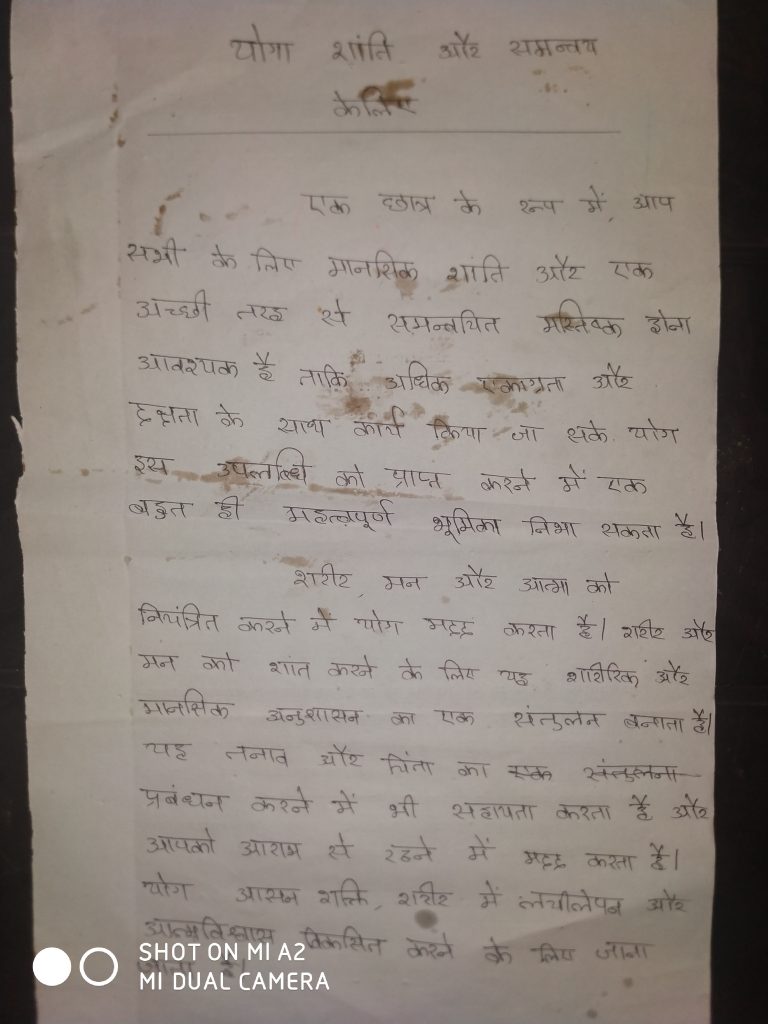 योगा शांति और समन्वय
केलिए
एक छात्र के रूप में, आप
सभी के लिए मानसिक शांति और एक
अच्छी तरह से समन्वयित मस्तिष्क होना
आवश्यक है ताकि अधिक एकाग्रता और
दक्षता के साथ कार्य किया जा सके. योग
इस उपलब्धि को प्राप्त करने में एक
बहुत ही महत्वपूर्ण भूमिका निभा सकता है।
शरीर, मन और आत्मा को
नियंत्रित करने में योग मदद करता है। शरीर और
मन को शांत करने के लिए यह शारीरिक और
मानसिक अनुशासन का एक संतुलन बनाता है।
यह तनाव और चिंता का एक संतुलना
प्रबंधन करने में भी सहायता करता है और
आपको आराम से रहने में मदद करता है।
योग आसन शक्ति, शरीर में लचीलेपन और
आत्मविश्वास विकसित करने के लिए जाना
जाता है।
SHOT ON MI A2
MI DUAL CAMERA